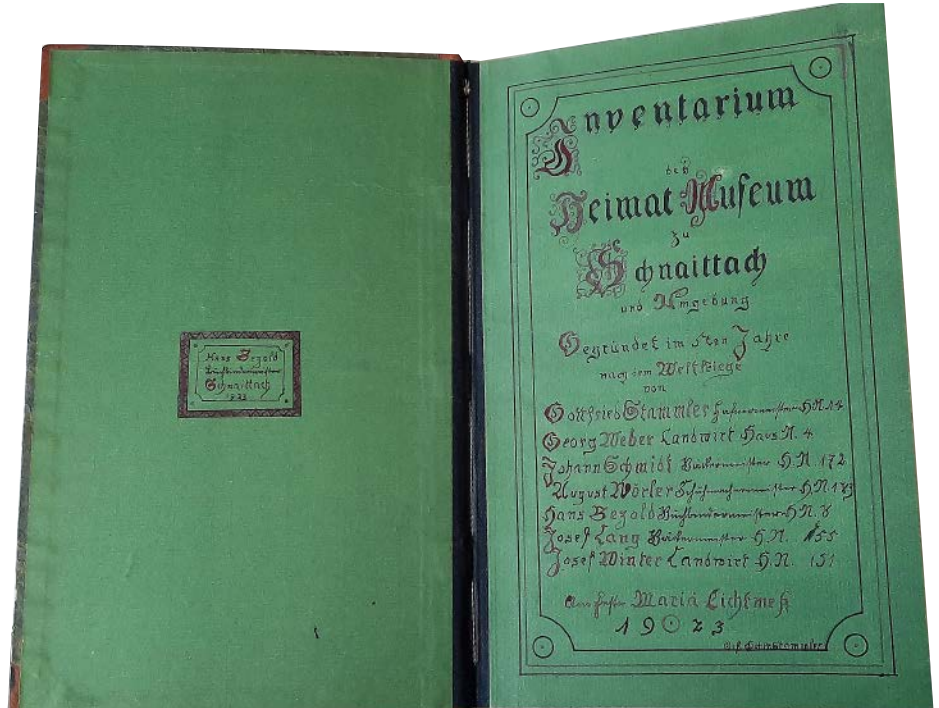 Hans Bezold
Buchbindermeister
Schnaittach
1923
Inventarium
des
Heimat Museum
zu
Schnaittach
und Umgebung
Gegründet im 5ten Jahre
nach dem Weltkriege
von
Gottfried Stammler Hafnermeister H.N. 14
Georg Weber Landwirt Haus N. 4
Johann Schmidt Bäckermeister H.N. 172
August Wörler Schuhmachermeister H.N. 173
Hans Bezold Buchbindermeister H.N. 8
Josef Lang Bäckermeister H.N. 155
Josef Winter Landwirt H.N. 151
Am Feste Maria Lichtmeß
1923